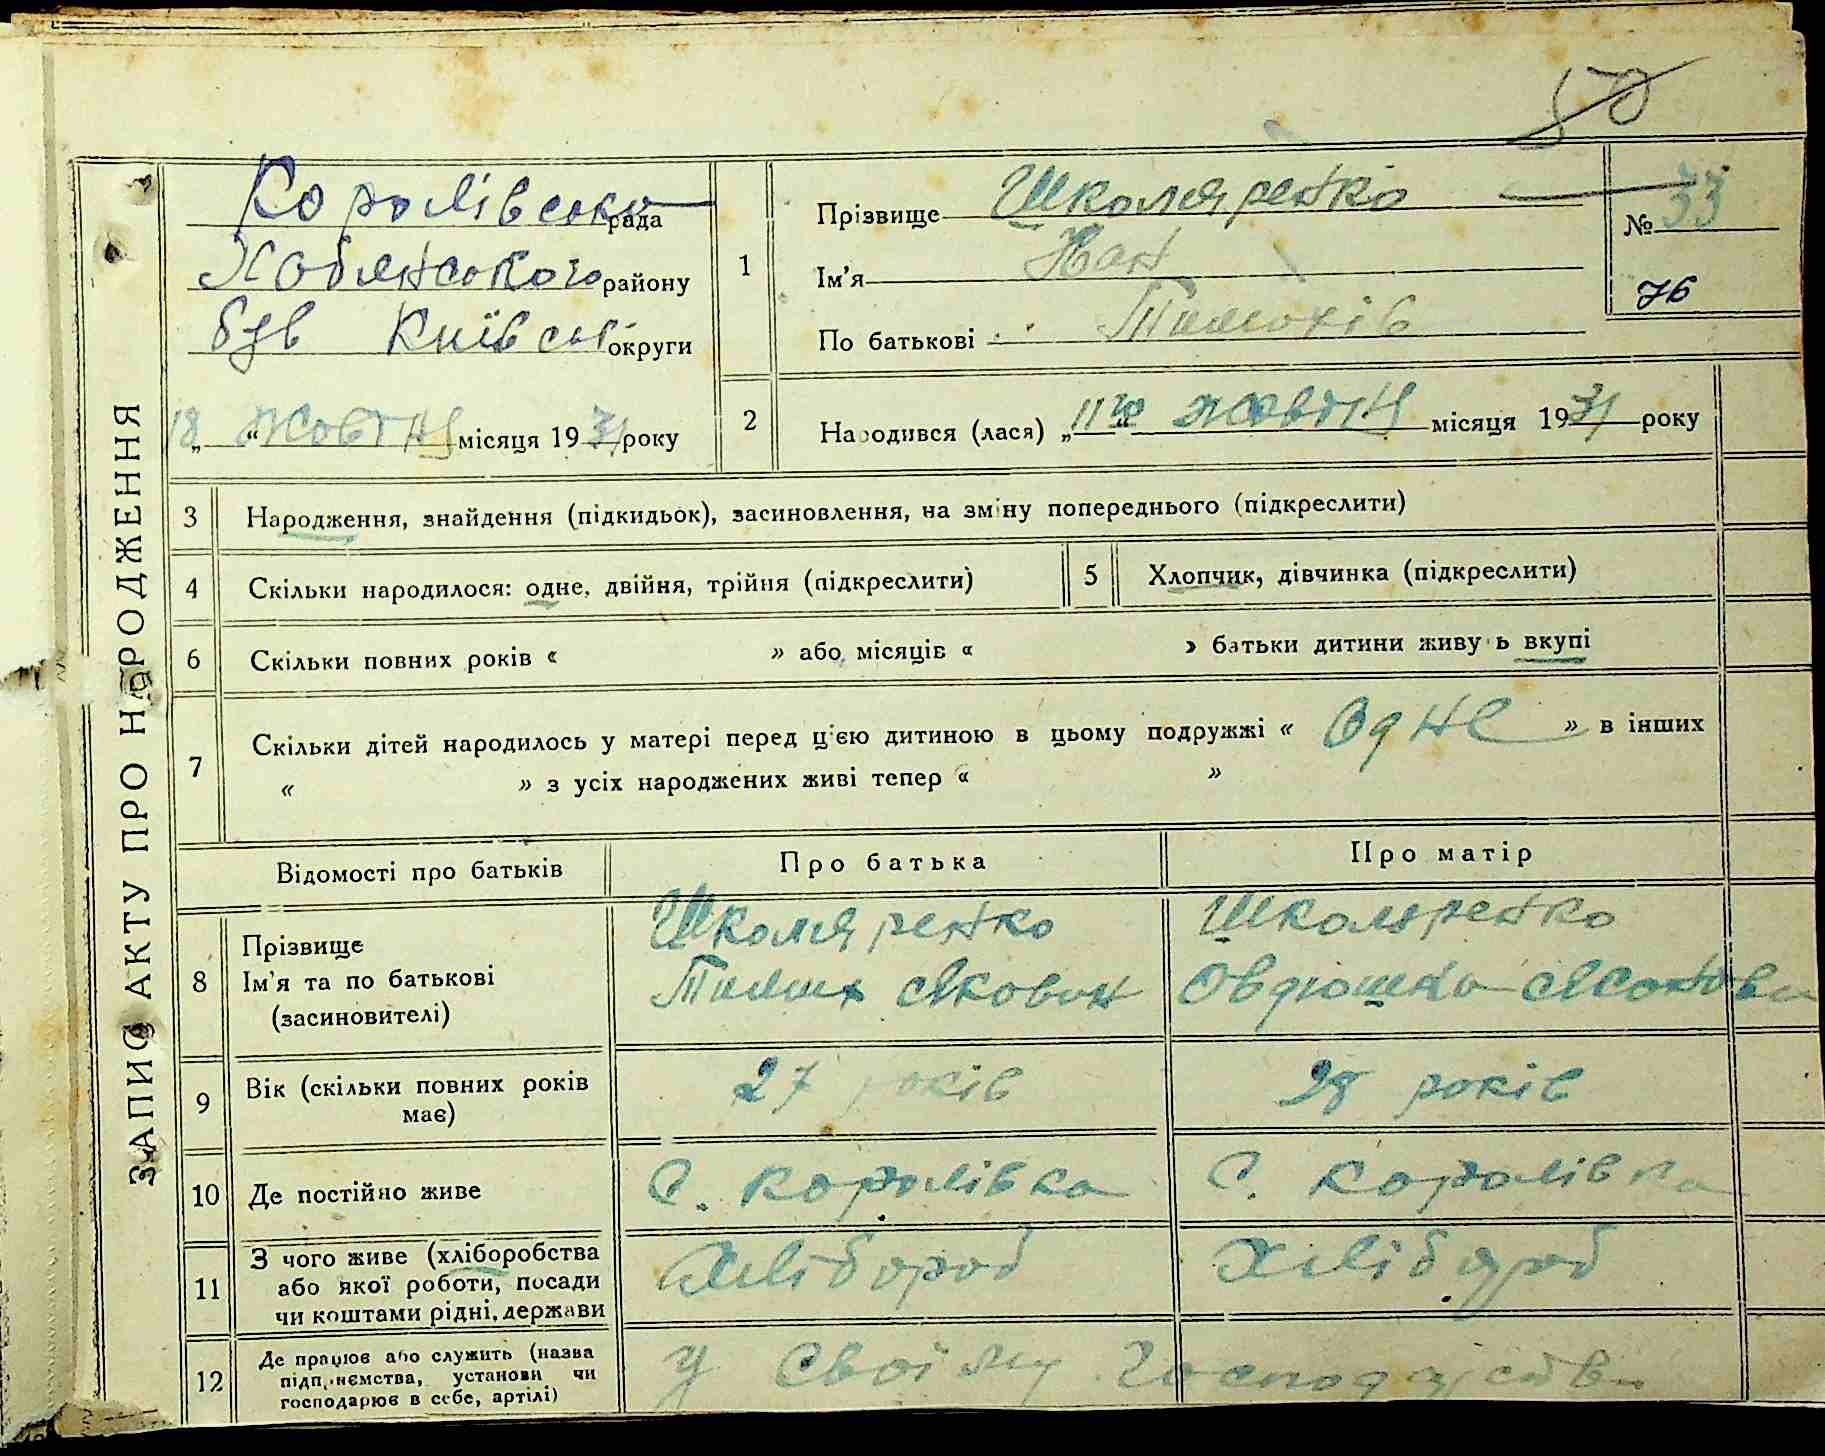 50
Королівська рада
Хабянського району
був Київськ округи
„18“ Жовтня місяця 1931 року
ЗАПИС АКТУ ПРО НАРОДЖЕННЯ
1
Прізвище Школяренко
Ім'я Иан
По батькові Тимохів
№ 33
76
2 Народився (лася) „11го“ жовтня місяця 1931 року
3 Народження, знайдення (підкидьок), засиновлення, на зміну попереднього (підкреслити)
4 Скільки народилося: одне, двійня, трійня (підкреслити) 5 Хлопчик, дівчинка (підкреслити)
6 Скільки повних років « » або місяців « » батьки дитини живуть вкупі
7 Скільки дітей народилось у матері перед ц'єю дитиною в цьому подружжі « Одне » в інших
« » з усіх народжених живі тепер « »
Відомості про батьків Про батька Про матір
8 Прізвище Школяренко Школяренко
Ім'я та по батькові Тимох Якович Овдюшка
(засиновителі)
9 Вік (скільки повних років 27 років 28 років
має)
10 Де постійно живе С. Королівка С. Королівка
11 З чого живе (хліборобства Хлібороб Хлібороб
або якої роботи, посади
чи коштами рідні, держави
12 Де працює або служить (назва У своїму господарстві
підприємства, установи чи
господарює в себе, артілі)